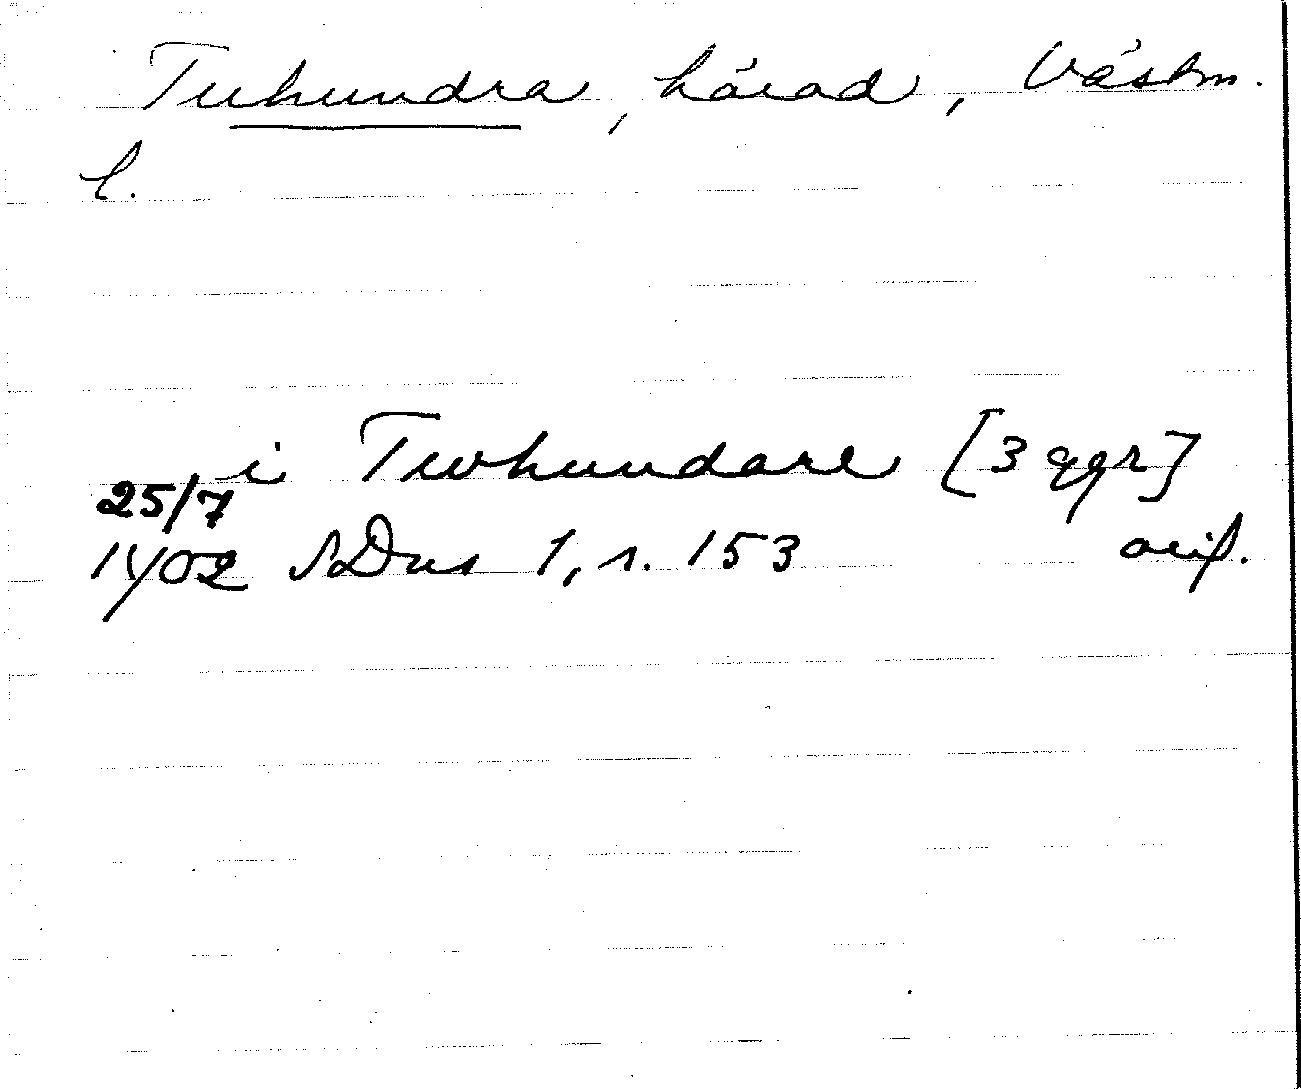 Tuhundra, härad, Västm.
l.
i Twhundare [3 ggr]
25/7
1402 SDns 1, s. 153 orig.